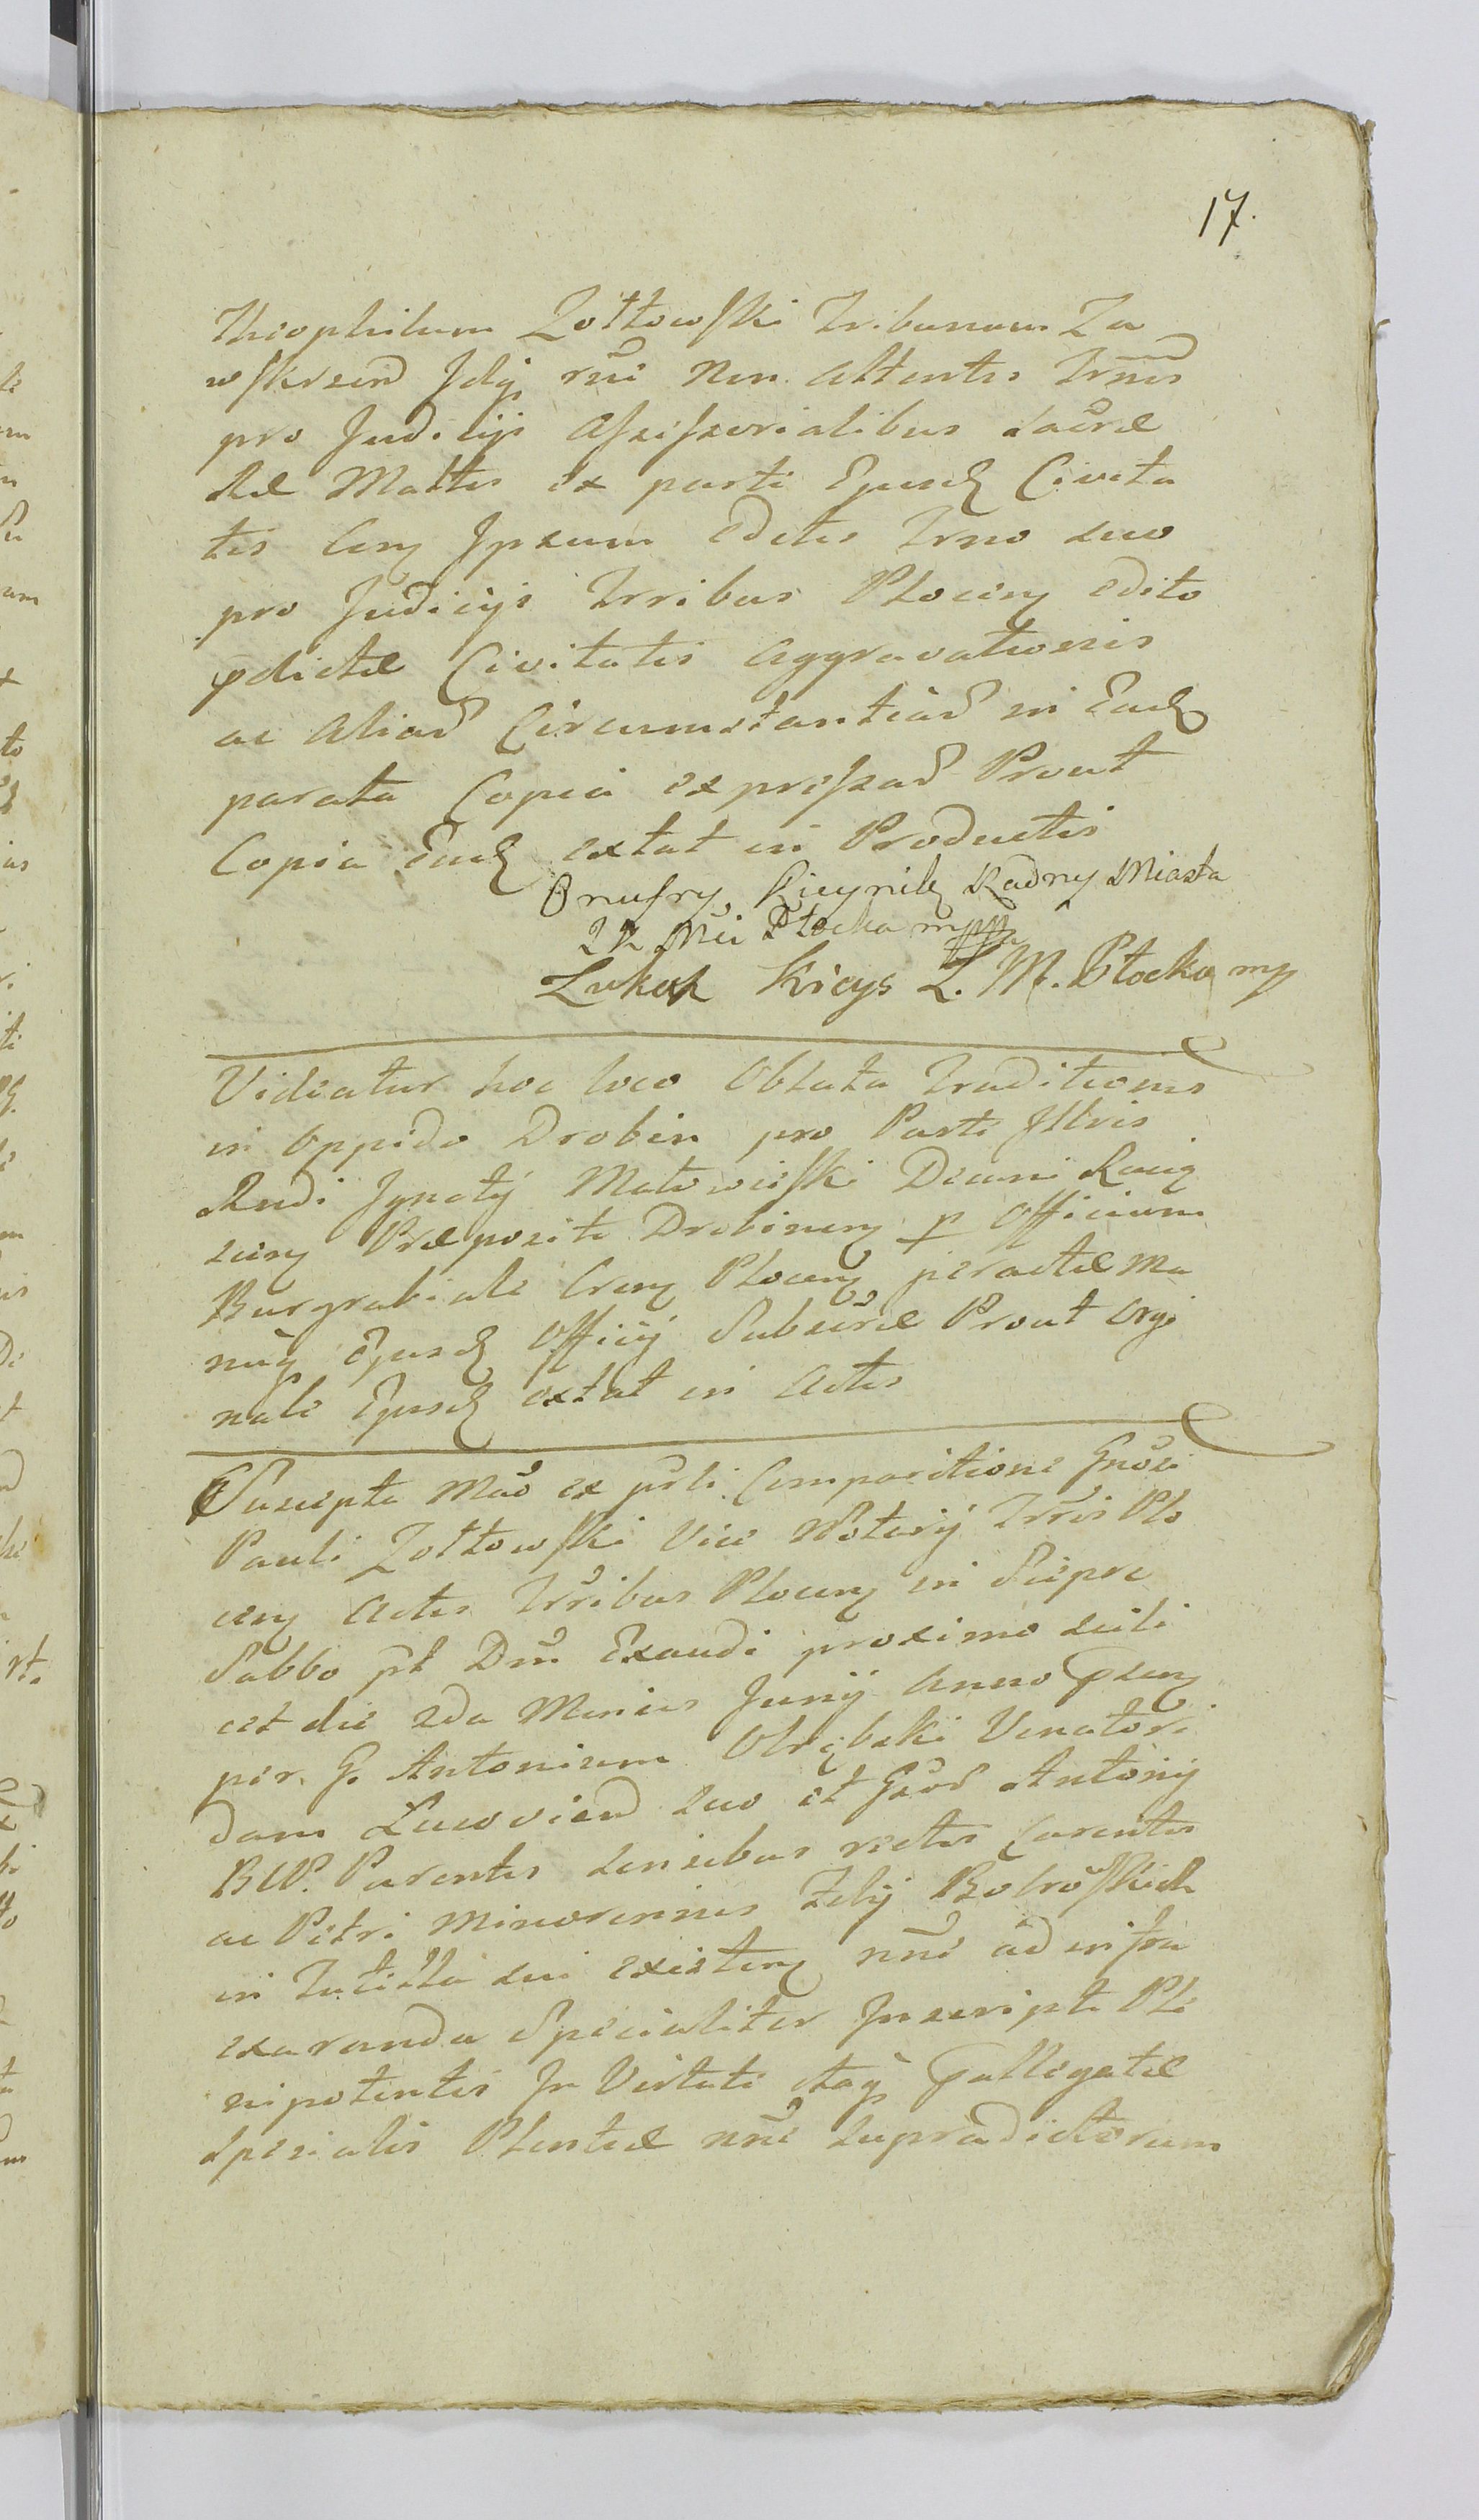 17.
Theophilum Zołtowski Tribunum Za
wskrzen Jdij rñe Non attentis Trñis
pro Judicijs Assessorialibus Sacræ
Ræ Mattis ex parte Ejusd Civita
tis Con Ipsum Editis Trno suo
pro Judicijs Trribus Plocen edito
pdictæ Civitatis Aggravationis
ac aliar Circumstantiar in Ead
parata Copia expressar Prout
Copia Ead extat in Productis
Onufry Kicynik Radny Miasta
J K Mci Płocka mppa
Lukasz Kicys L. M. Płocka mp
Videatur hoc loco Oblata Traditionis
in Oppido Drobin pro Parte Illris
Rndi Ignatij Mato wieski Decani Racią
zen Præpositi Drobinen p Officium
Burgrabiale Cren Plocen peractæ Ma
nuq Ejusd Officij Subscræ Prout Orgi
nale Ejusd extat in Actis
Suscepta Mao ex psli Comparitione Gnosi
Pauli Zołtowski Vice Notarij Trris Plo
cen Actis Trribus Plocen in Sierpc
Sabbo pt Dnı Exaudi proximo scili
cet die 2da Mensis Junij Anno Psen
per G. Antonium Obrębski Venatori
dam Lucovien suo et Gsor Antonij
B W. Parentis sensibus rectis Carentis
ac Petri Minorennis Zdij Bobrowskich
in Tutella sui existen nñe ad infra
exaranda Specialiter Inscripti Ple
nipotentis In Virtute itaq pallegatæ
Specialis Plentiæ nñe Supradictorum